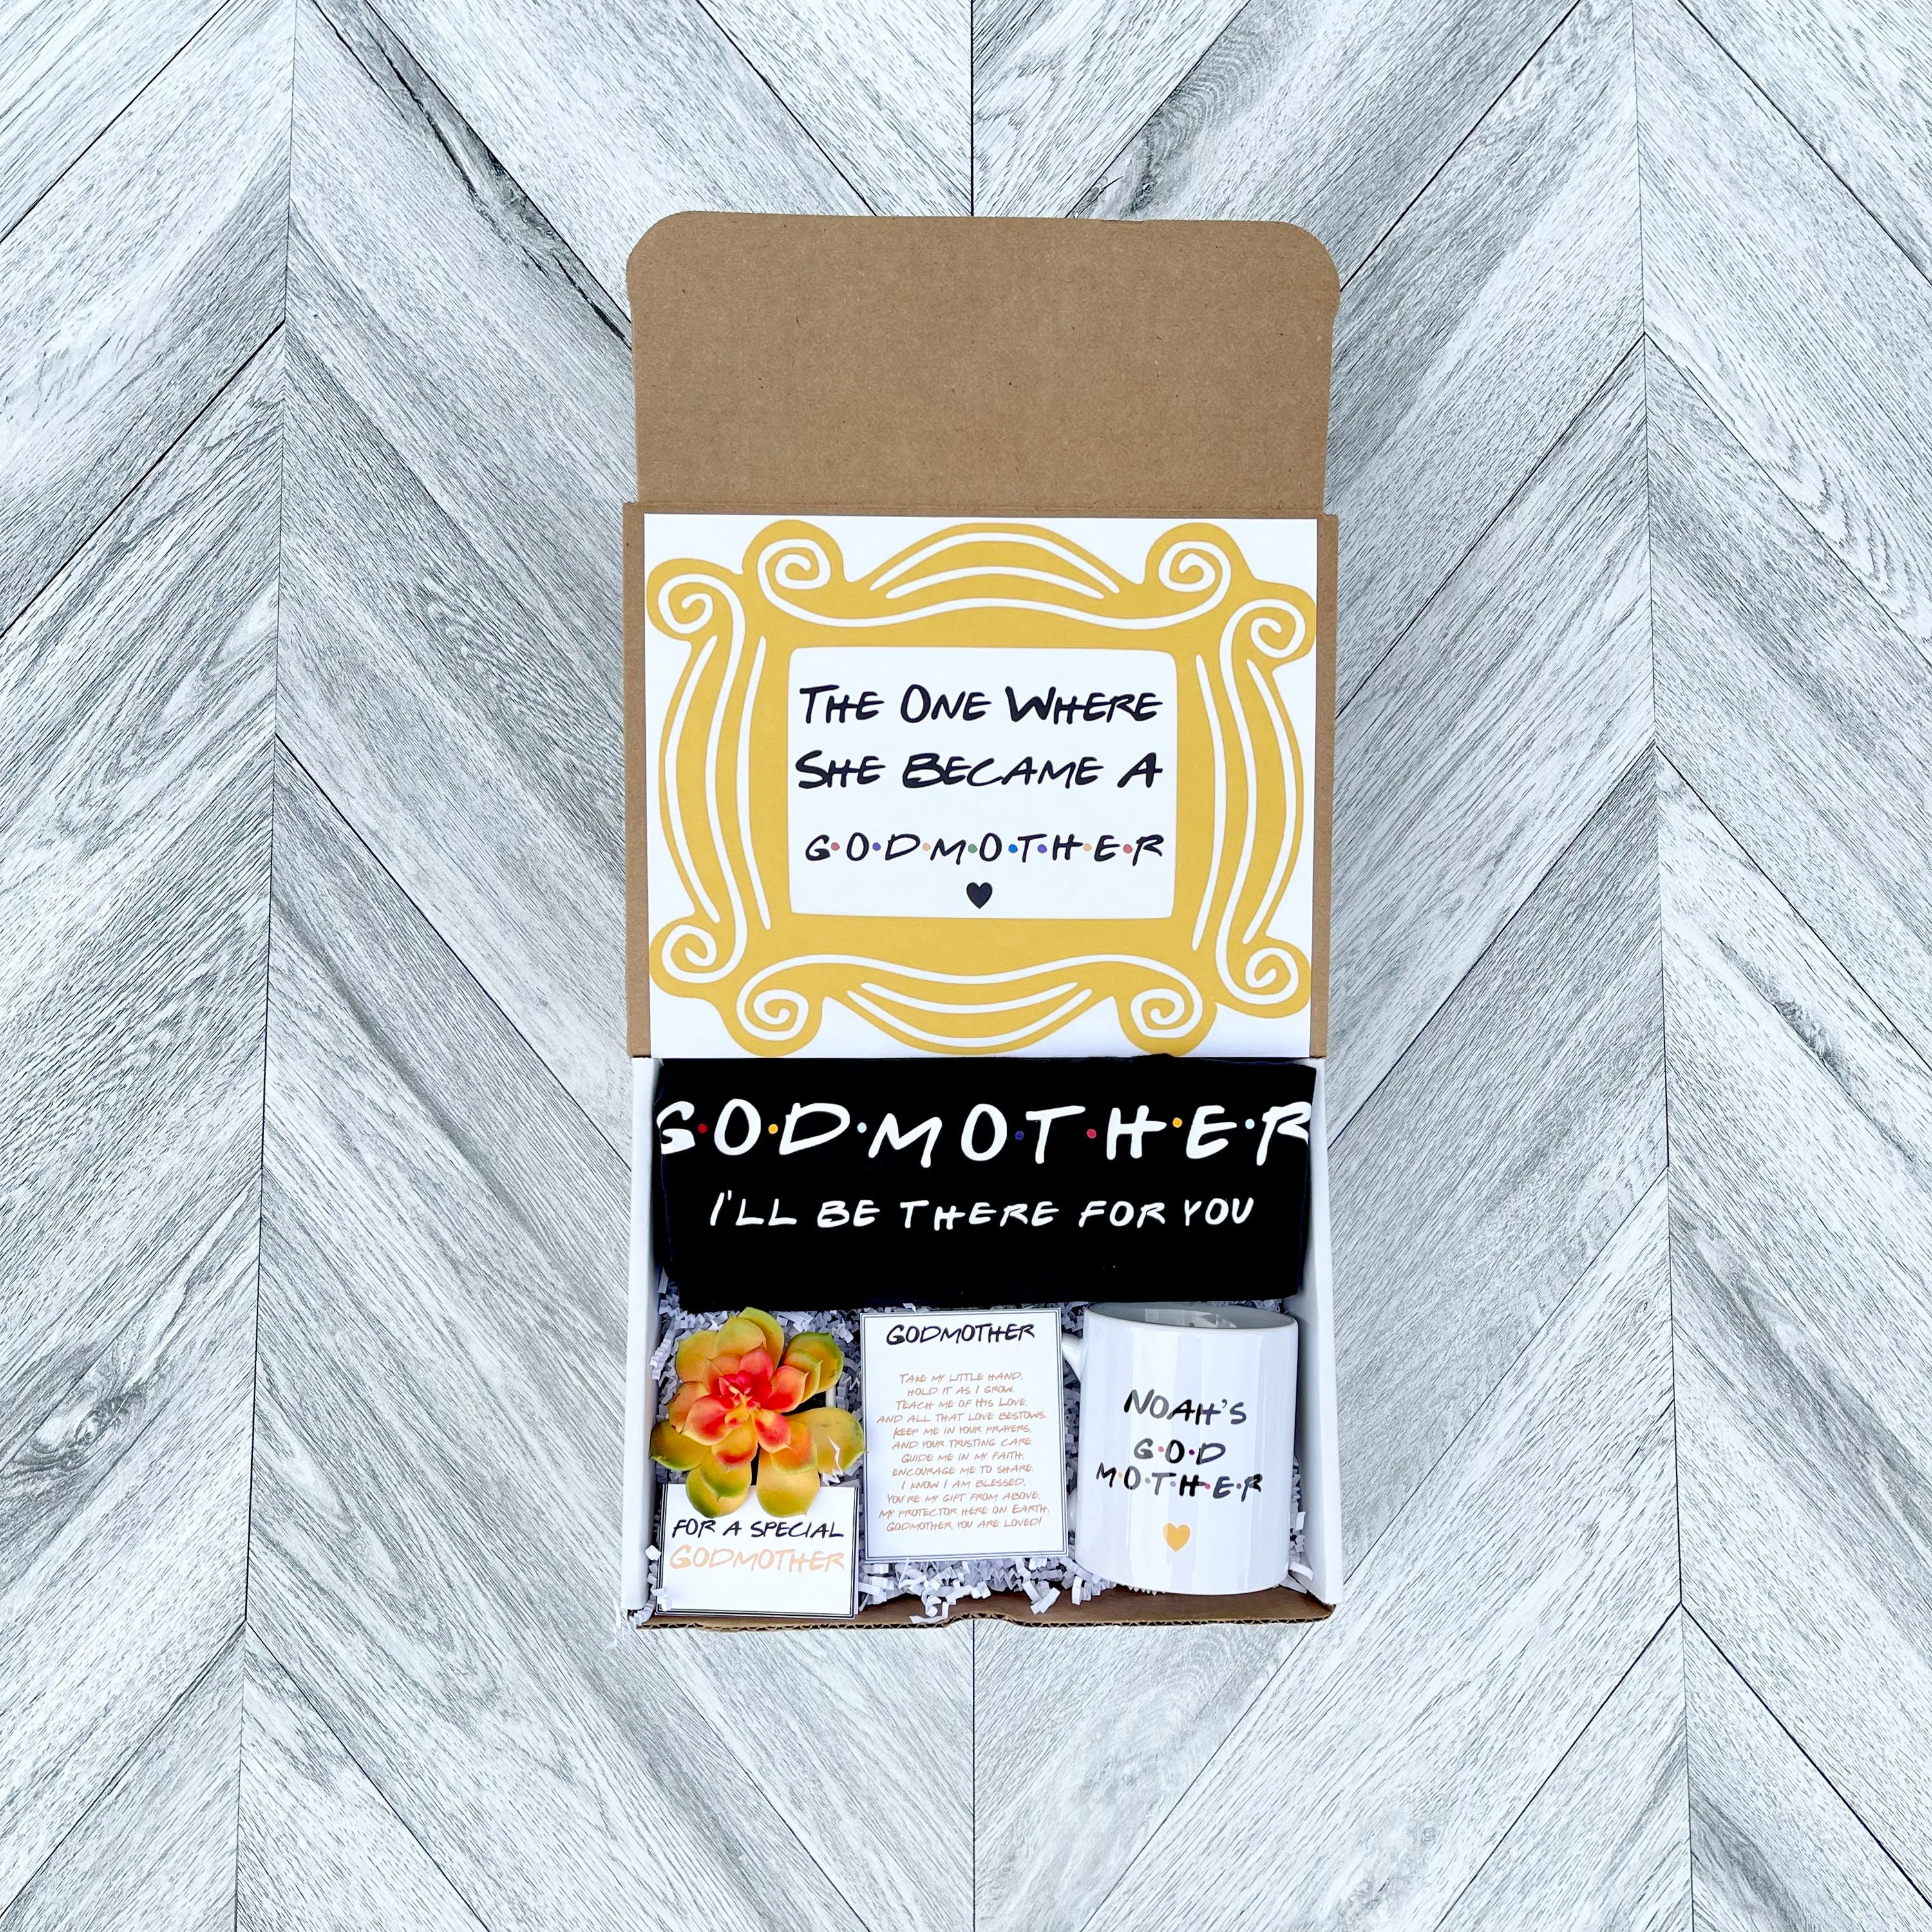 THE ONE WHERE
SHE BECAME A
G·O·D·M·O·T·H·E·R
GODMOTHER
I'LL BE THERE FOR YOU
FOR A SPECIAL
GODMOTHER
GODMOTHER
TAKE MY LITTLE HAND,
HOLD IT AS I GROW.
TEACH ME OF HIS LOVE,
AND ALL THAT LOVE BESTOWS.
KEEP ME IN YOUR PRAYERS,
AND YOUR TRUSTING CARE.
GUIDE ME IN MY FAITH,
ENCOURAGE ME TO SHARE.
I KNOW I AM BLESSED,
YOU'RE MY GIFT FROM ABOVE,
MY PROTECTOR HERE ON EARTH,
GODMOTHER YOU ARE LOVED!
NOAH'S
G·O·D
M·O·T·H·E·R